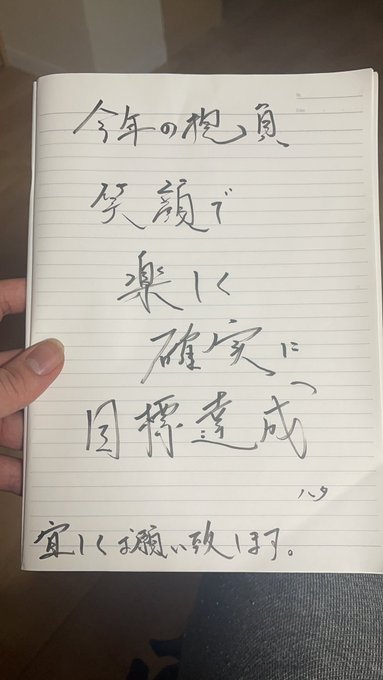 今年の抱負
笑顔で
楽しく
確実に、
目標達成
ハタ
宜しくお願い致します。